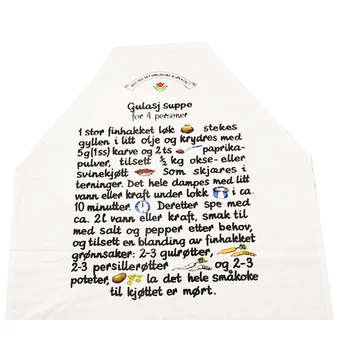 Gulasj suppe
for 4 personer
1 stor finhakket løk stekes
gyllen i litt olje og krydres med
5g(1ss) karve og 2ts paprika-
pulver, tilsett ½ kg okse- eller
svinekjøtt Som skjæres i
terninger. Det hele dampes med litt
vann eller kraft under lokk i ca.
10 minutter. Deretter spe med
ca. 2l vann eller kraft, smak til
med salt og pepper etter behov,
og tilsett en blanding av finhakket
grønnsaker: 2-3 gulrøtter,
2-3 persillerøtter og 2-3
poteter, la det hele småkoke
til kjøttet er mørt.